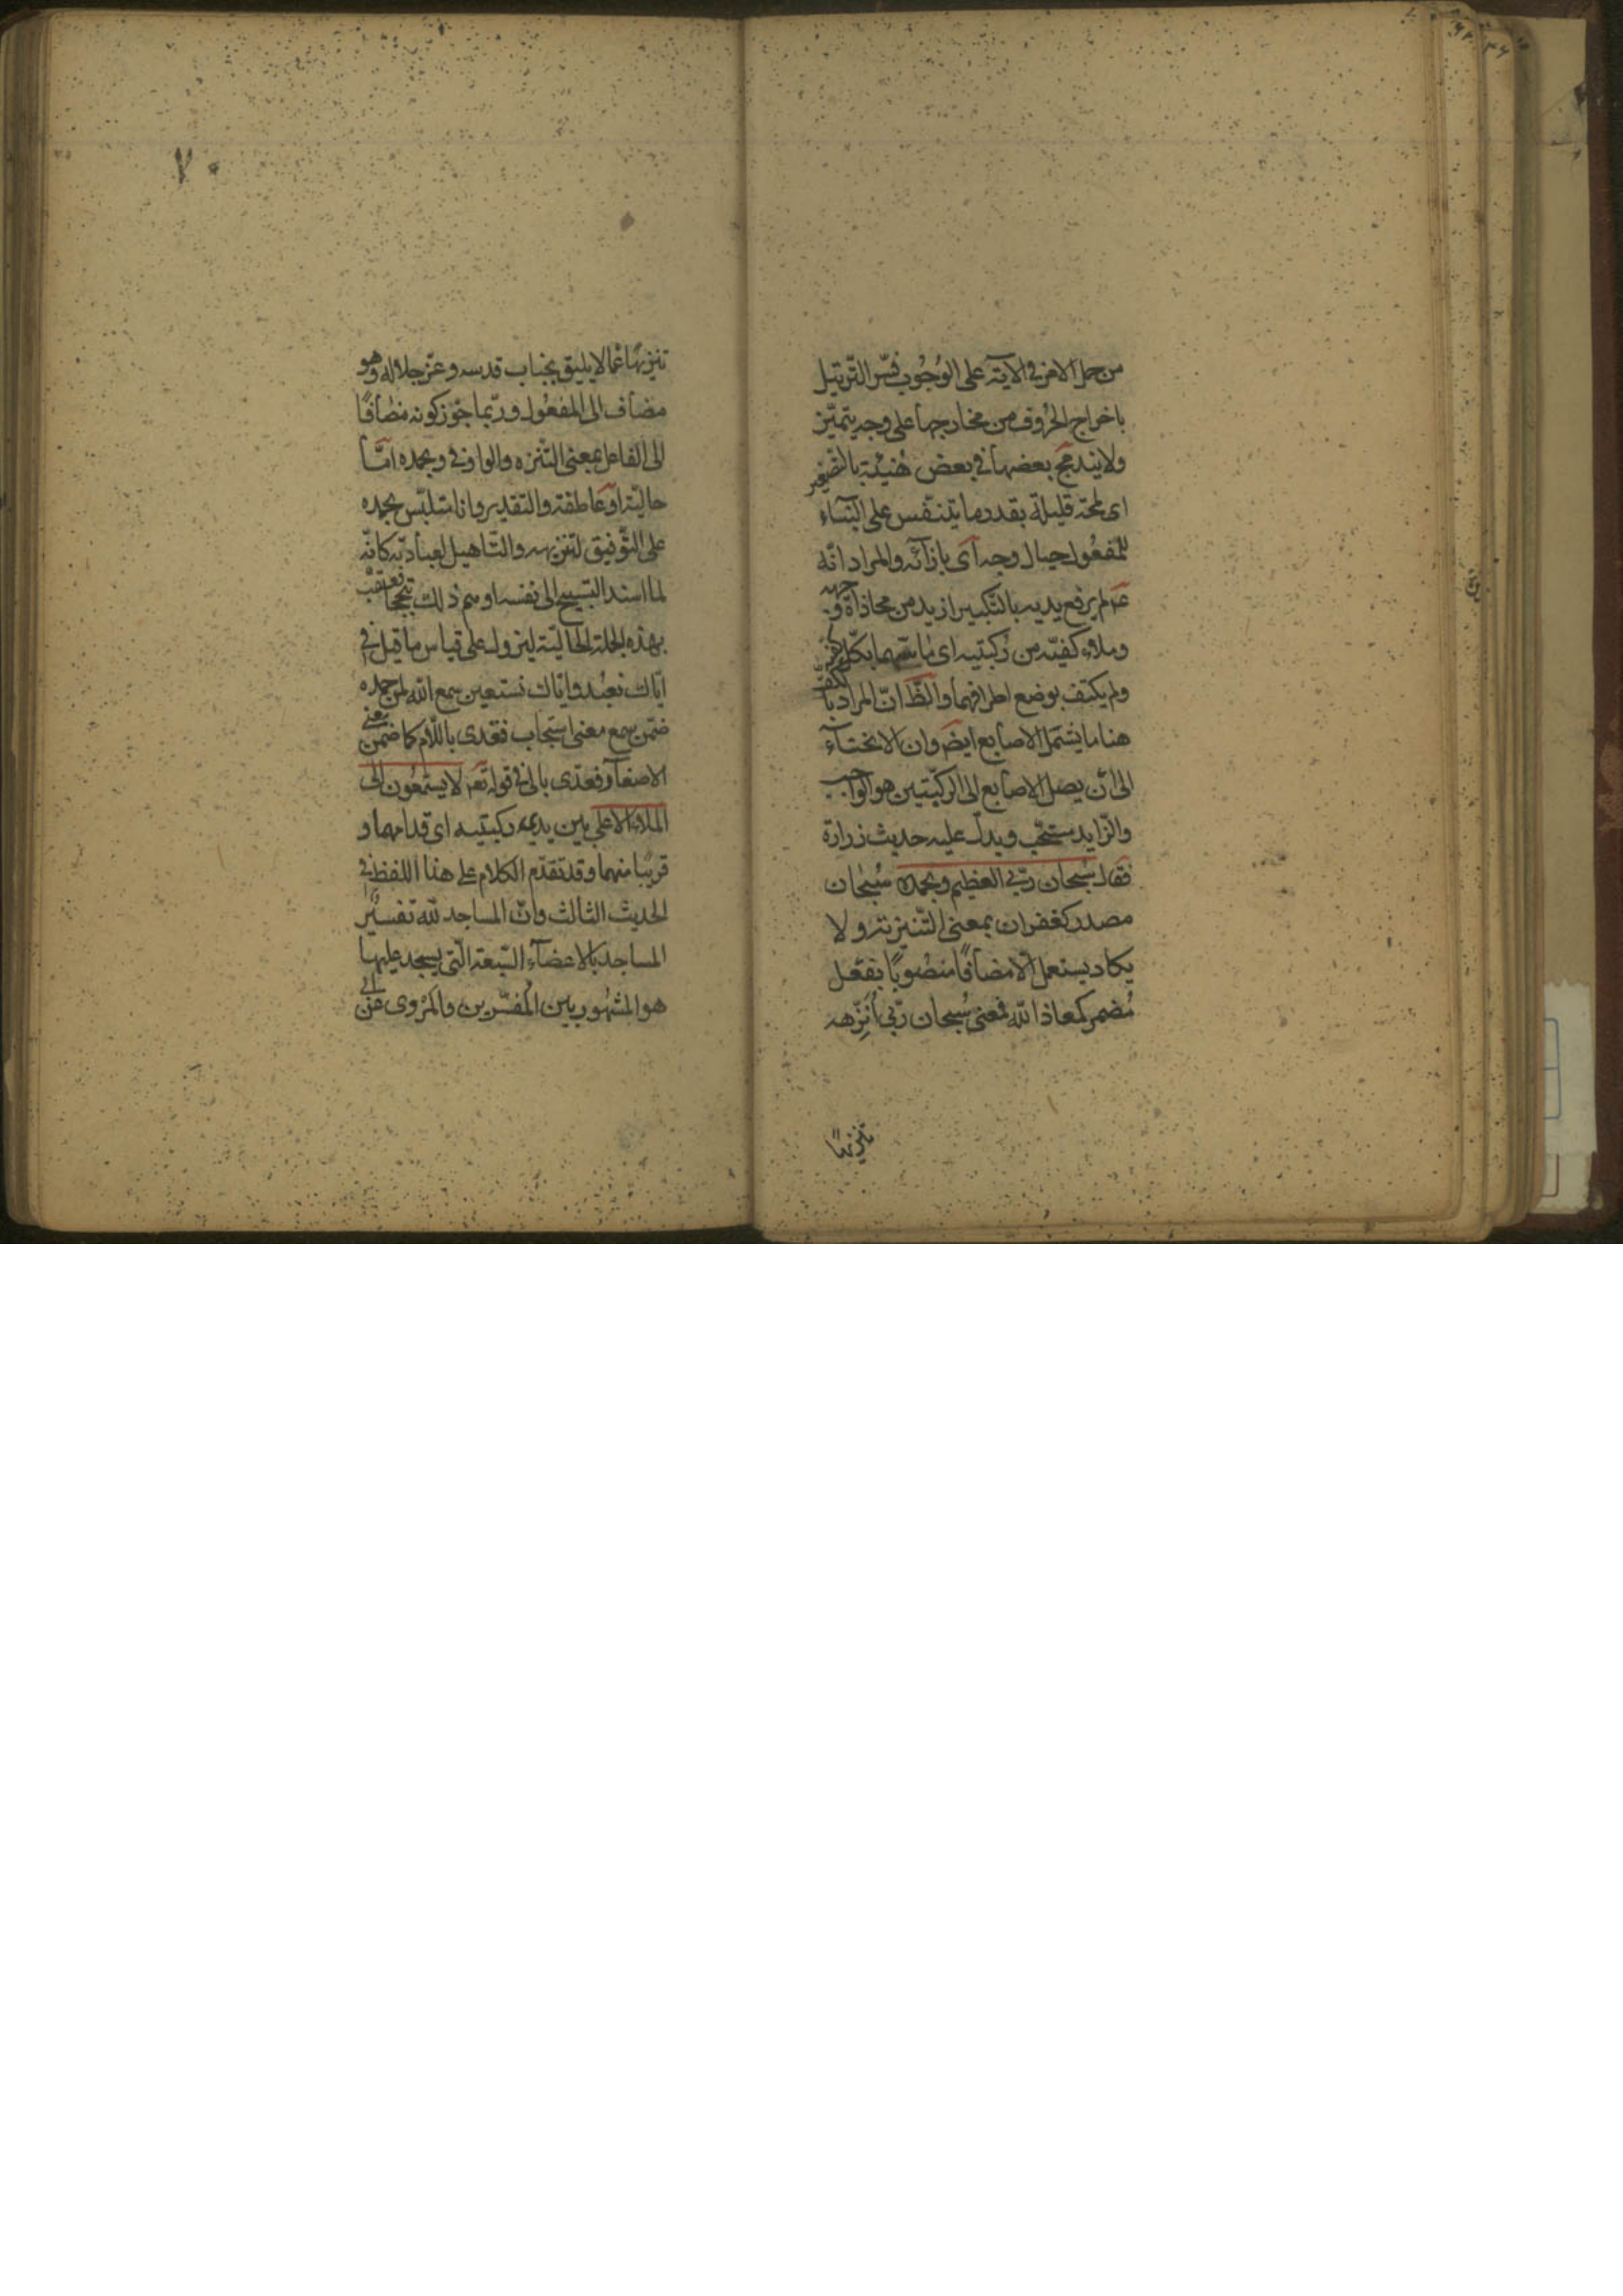 من حمل الامر فی الآیة علی الوُجُوب فسّر التّرتیل
باخراج الحُروف من مخارجها علی وجه یتمیّز
ولا یندمج بعضها فی بعض هُنیئة بالتصغیر
ای لمحة قلیلة بقدر ما یتنفّس علی البناء
للمفعُول حیال وجهه ای بازآئه والمراد انّه
عم لم یرفع یدیه بالتکبیر ازید من محاذاة وجهه
وملاء کفیّه من رُکبتیه ای ماسّهما بکلّ کفیه
ولم یکتف بوضع اطرافهما والظّ انّ المراد بالکفّ
هنا ما یشتمل الاصابع ایضَ وان الانحناء
الی أن یصل الاصابع الی الرکبتین هو الواجب
والزّاید مستحّب ویدلّ علیه حدیث زرارة
فقال سُبحان ربّی العظیم وبحمده سُبحان
مصدر کغفران بمعنی التّنزیه ولا
یکاد یستعمل الّا مضافًا منصُوبًا بفعل
مُضمر کمعاذ الله فمعنی سُبحان ربّی أُنَزِّهه
تنزیهًا
۷۰
تنزیهًا عمّا لا یلیق بجناب قدسه وعزّ جلاله وهو
مضاف الی المفعُول وربّما جوّز کونه مضافًا
الی الفاعل بمعنی التّنزه والواو فی وبحمده امّا
حالیّة او عاطفة والتقدیر وانا متلبّس بحمده
علی التّوفیق لتنزیهه والتّاهیل لعبادته کانّه
لما اسند التسبیح الی نفسه اوهم ذلک تبجحا فعقّب
بهذه الجملة الحالیّة لیزول علی قیاس ما قیل فی
ایّاک نعبُد وایّاک نستعین سمع الله لمن حمده
ضمّن سمع معنی استجاب فعُدّی باللّام کما ضمّن معنی
الاصغآ وفعدّی بالی فی قوله تعَ لا یسّمّعُون الی
الملاء الاعلی بین یدی رکبتیه ای قدامهما و
قریبًا منهما وقد تقدّم الکلام علی هذا اللفظ فی
الحدیث الثالث وانّ المساجد لله تفسیر
المساجد بالاعضآء السّبعة الّتی یسجد علیها
هو المشهُور بین المُفسّرین والمرْوی عن ابی